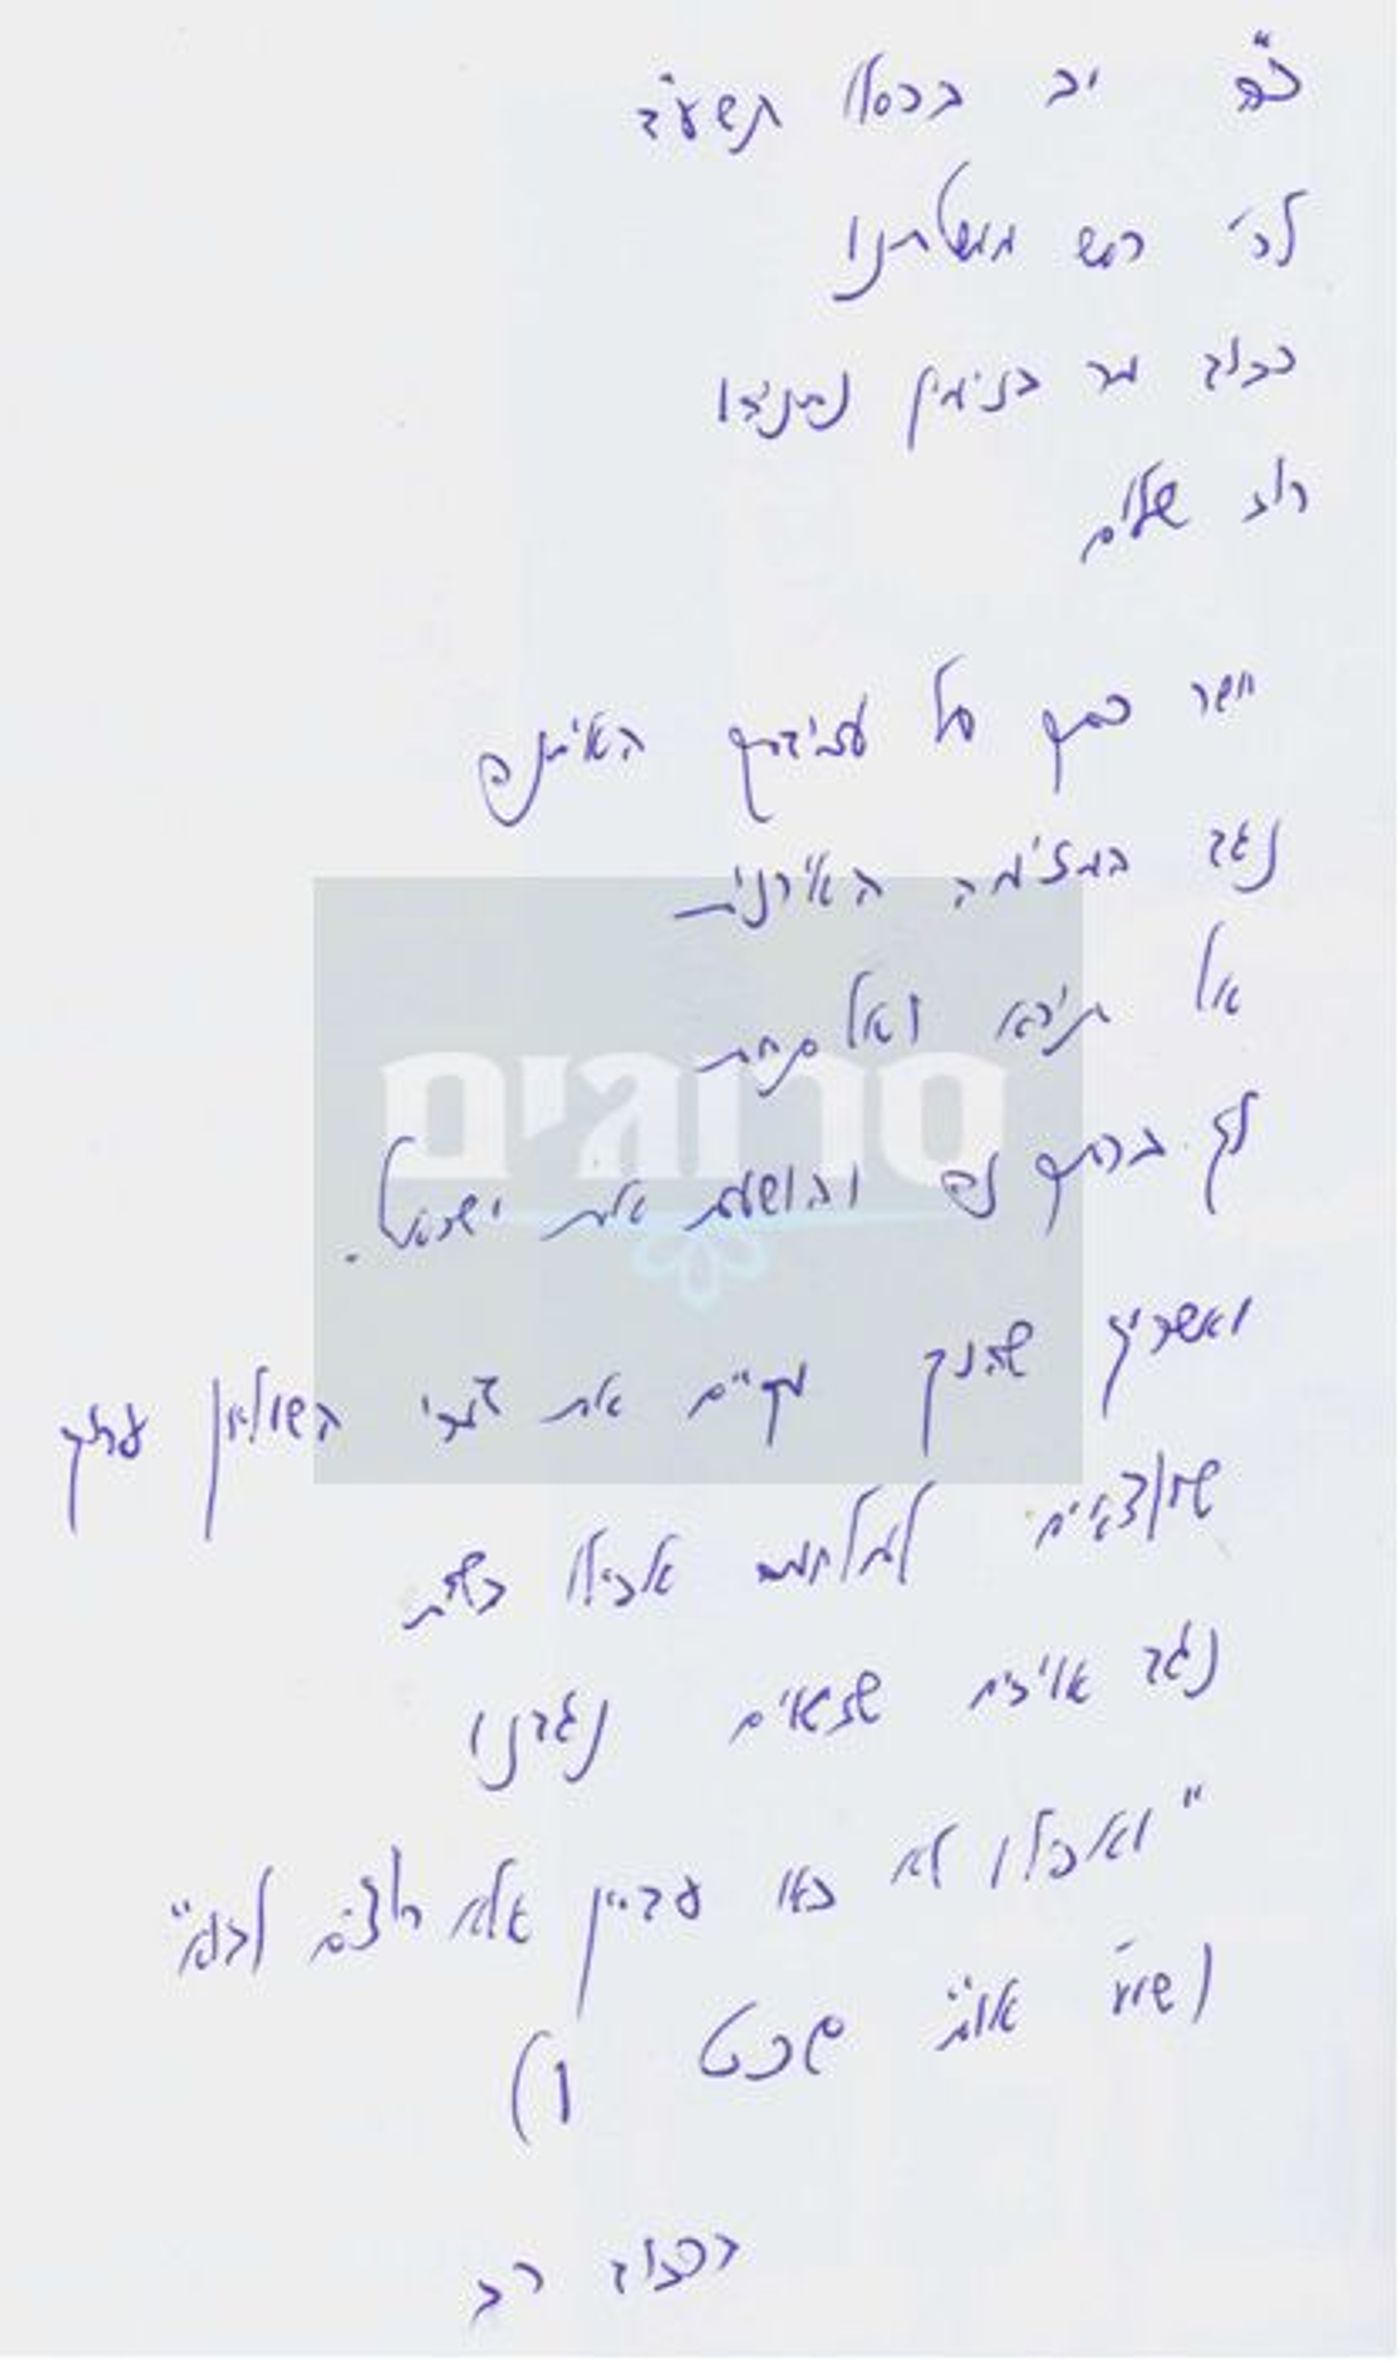 ב"ה יב בכסלו תשע"ד
לכ' ראש ממשלתנו
כבוד מר בנימין נתניהו
רוב שלום
יישר כחך על עמידתך האיתנה
נגד המזימה האירנית
אל תירא ואל תחת
לך בכחך זה והושעת את ישראל.
ואשריך שהנך מקיים את דברי השולחן ערוך
שיוצאים למלחמה אפילו בשבת
נגד אויבים שבאים נגדנו
"ואפילו לא באו עדיין אלא רוצים לבא"
(שו"ע או"ח שכט ו)
בכבוד רב
סרוגים